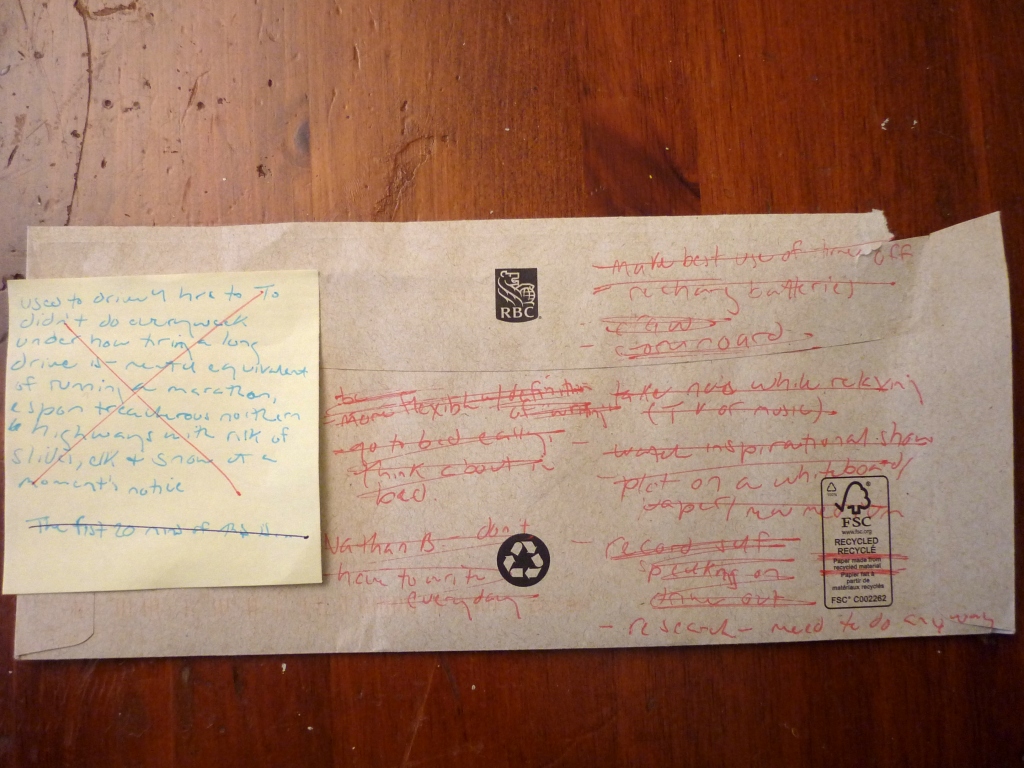 used to drive 4 hrs to TO
didn't do every week
under how tiring a long
drive is - mental equivalent
of running a marathon,
espan treacherous northern
highways with risk of
slides, elk & snow at a
moment's notice
The first 20 mins of
RBC
be
more flexible w/definition
of writing
- go to bed early,
think about in
bed.
Nathan B. - don't
have to write
everyday
- Make best use of time off
recharg batteries
draw
- storyboard
take nois while relaxing
(TV or music).
- watch inspirational show
plot on a whiteboard/
paper/new medium
- record self
speaking on
drive out
- research - need to do anyway
FSC
www.fsc.org
RECYCLED
RECYCLÉ
Paper made from
recycled material
Papier fait à
partir de
matériaux recyclés
FSC® C002262